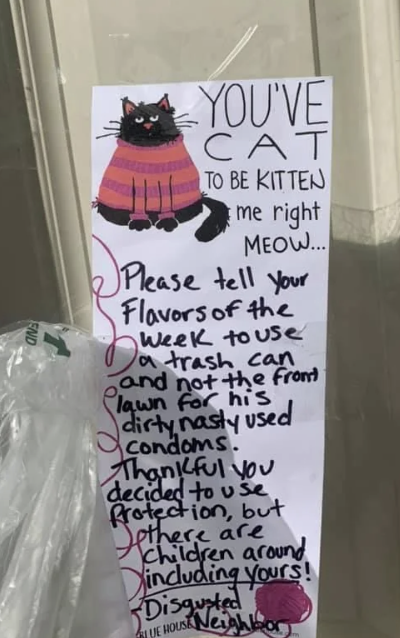 YOU'VE
CAT
TO BE KITTEN
me right
MEOW...
Please tell your
Flavors of the
Week to use
a trash can
and not the front
lawn for his
dirty nasty used
condoms.
Thankful you
decided to use
Protection, but
there are
children around
including yours!
-Disgusted
Neighbor
BLUE HOUSE
END
1